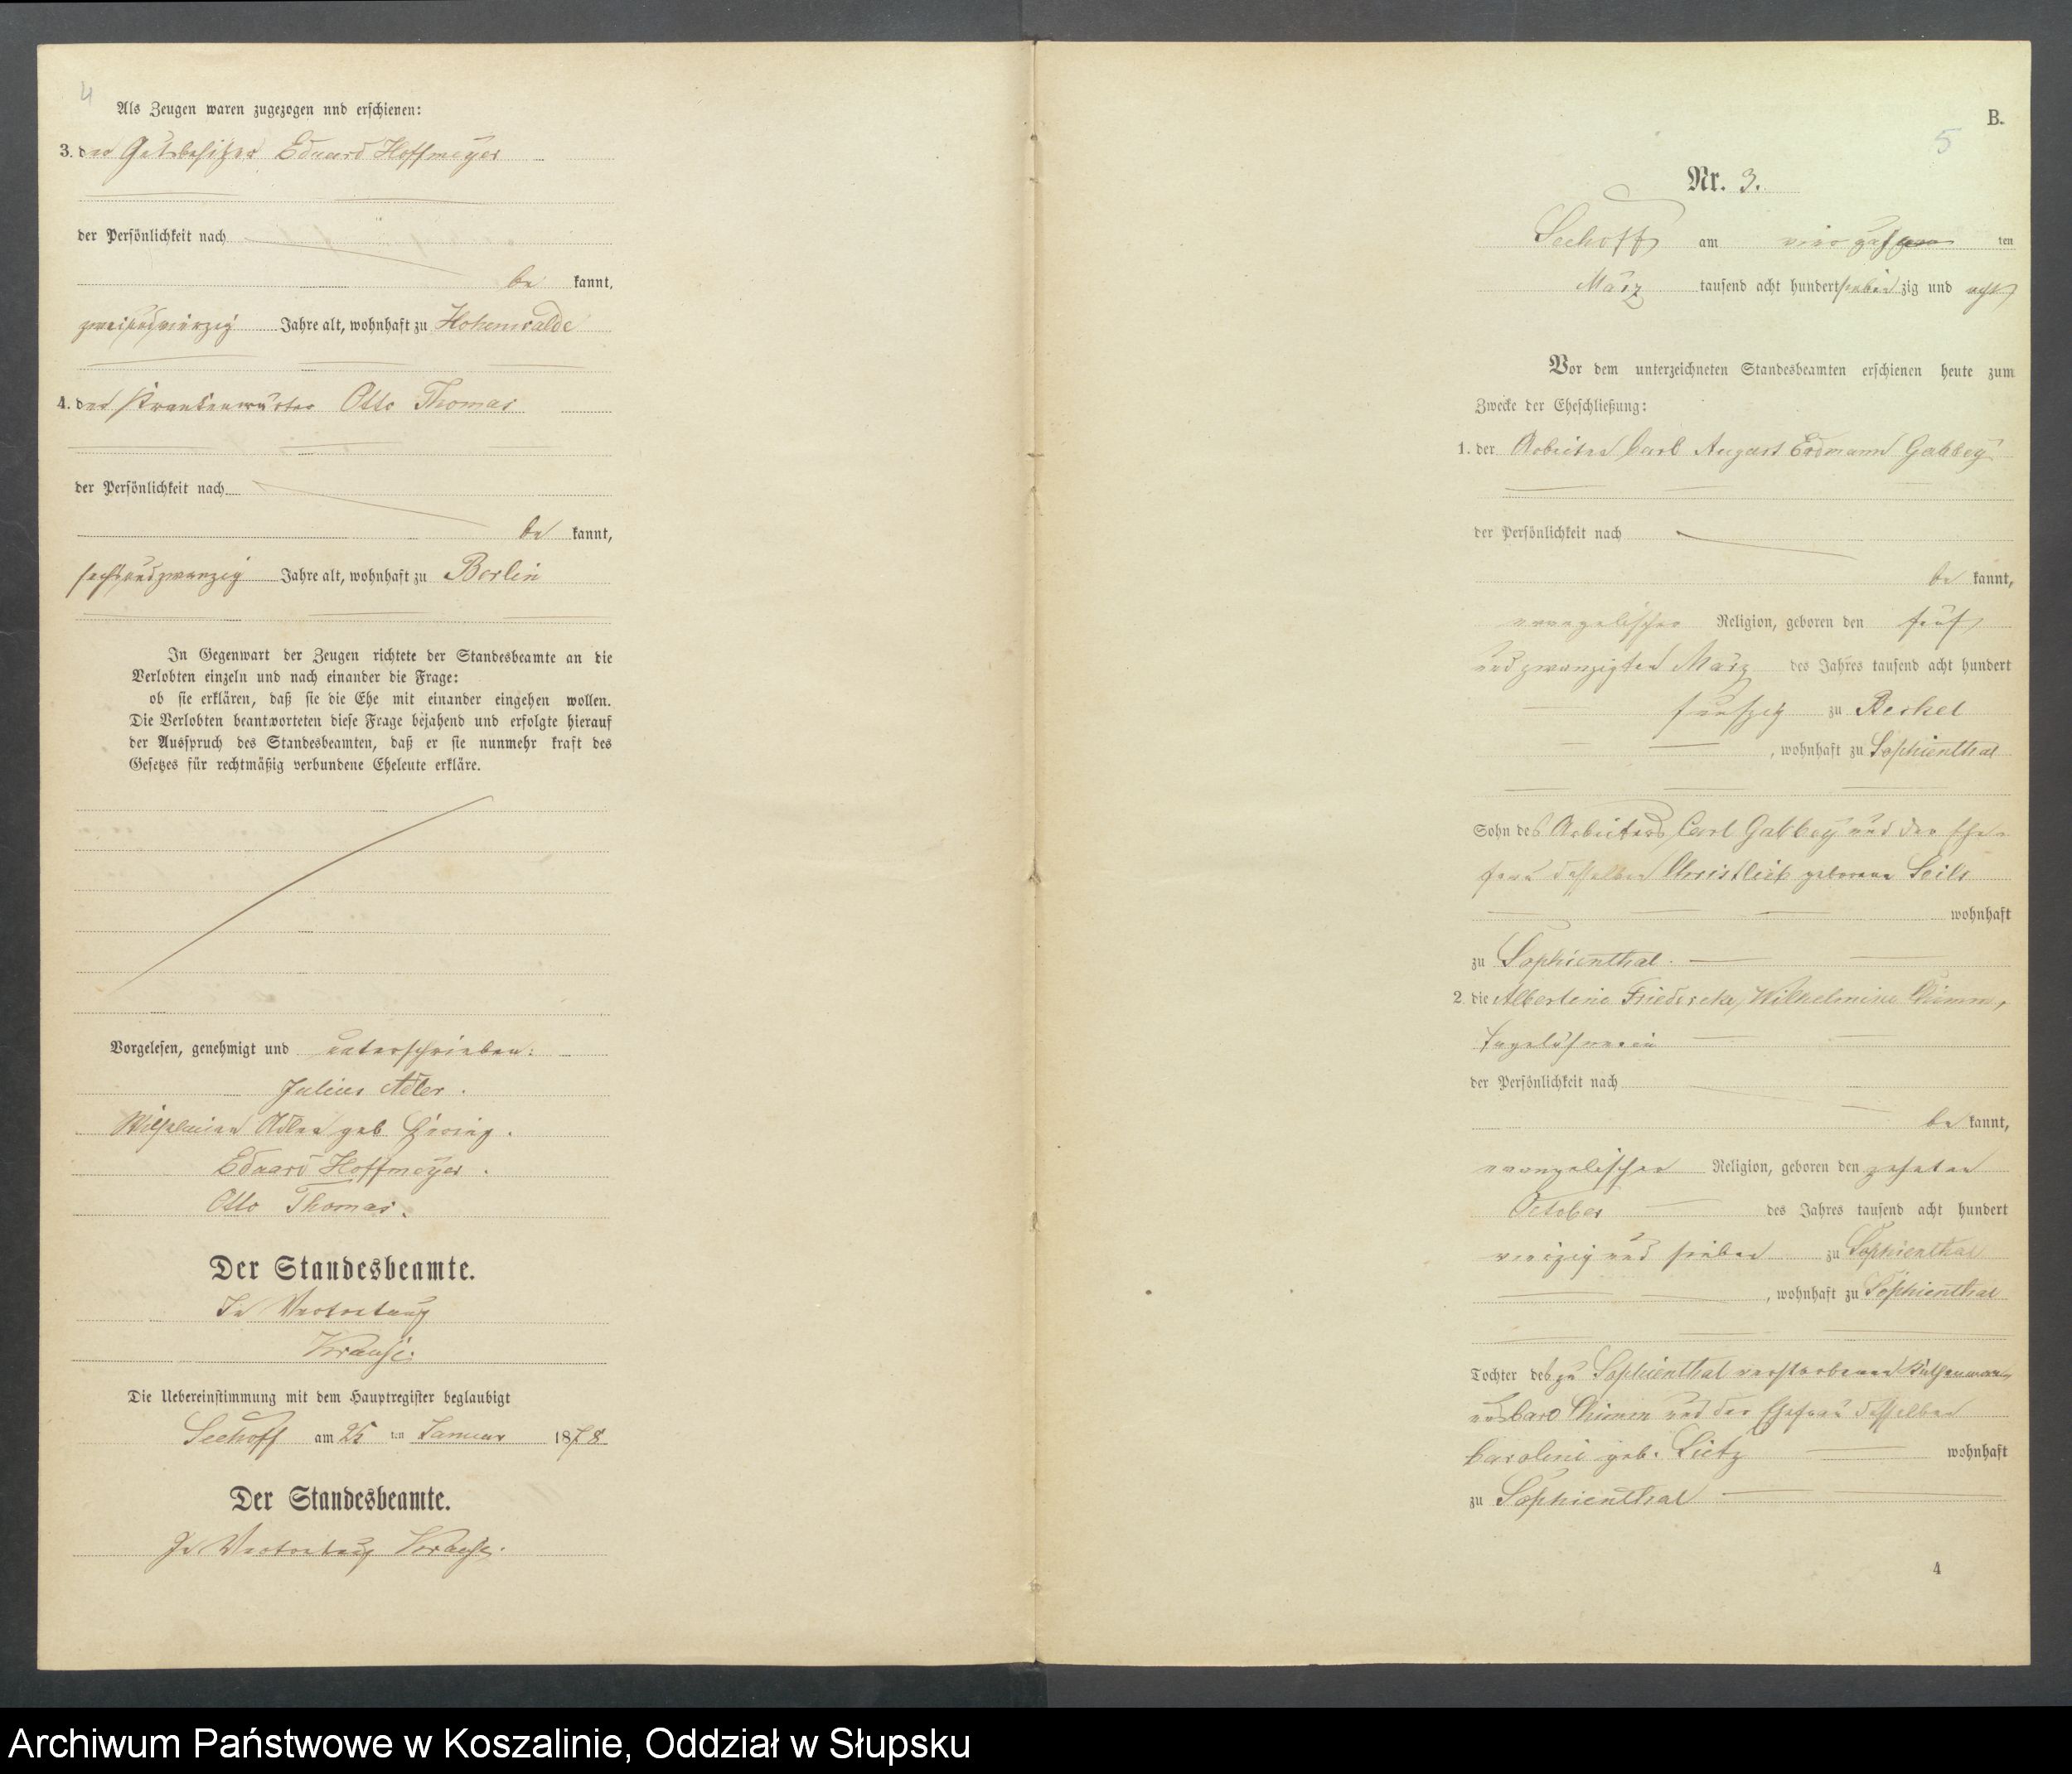 4
Als Zeugen waren zugezogen nnd erschienen:
3. der Gutsbesitzer Eduard Hoffmeyer
der Persönlichkeit nach
be kannt,
zweiundvierzig Jahre alt, wohnhaft zu Hohenwalde
4. der Krankenwärter Otto Thomas
der Persönlichkeit nach
be kannt,
sechsundzwanzig Jahre alt, wohnhaft zu Berlin
In Gegenwart der Zeugen richtete der Standesbeamte an die
Verlobten einzeln und nach einander die Frage:
ob sie erklären, daß sie die Ehe mit einander eingehen wollen.
Die Verlobten beantworteten diese Frage bejahend und erfolgte hierauf
der Ausspruch des Standesbeamten, daß er sie nunmehr kraft des
Gesetzes für rechtmäßig verbundene Eheleute erkläre.
Vorgelesen, genehmigt und unterschrieben:
Julius Adler.
Wilhelmine Adler geb
Eduard Hoffmeyer.
Otto Thomas.
Der Standesbeamte.
In Vertretung
Krause.
Die Uebereinstimmung mit dem Hauptregister beglaubigt
Seehoff am 25 ten Januar 1878
Der Standesbeamte.
In Vertretung Krause.
B.
5
Nr. 3.
Seehoff am vierzehn ten
März tausend acht hundert sieben zig und acht
Vor dem unterzeichneten Standesbeamten erschienen heute zum
Zwecke der Eheschließung:
1. der Arbeiter Carl August Erdmann Gabbey
der Persönlichkeit nach
be kannt,
evangelischer Religion, geboren den fünf
und zwanzigsten März des Jahres tausend acht hundert
funfzig zu Beckel
, wohnhaft zu Sophienthal
Sohn des Arbeiters Carl Gabbey und der Ehe-
frau desselben Christlieb geborene Seils
wohnhaft
zu Sophienthal.
2. die Albertine Friedericke Wilhelmine
Tagelöhnerin
der Persönlichkeit nach
be kannt,
evangelischer Religion, geboren den zehnten
October des Jahres tausend acht hundert
vierzig und sieben zu Sophienthal
, wohnhaft zu Sophienthal
Tochter des zu Sophienthal verstorbenen
und der Ehefrau desselben
Caroline geb. Lietz wohnhaft
zu Sophienthal
4
Archiwum Państwowe w Koszalinie, Oddział w Słupsku